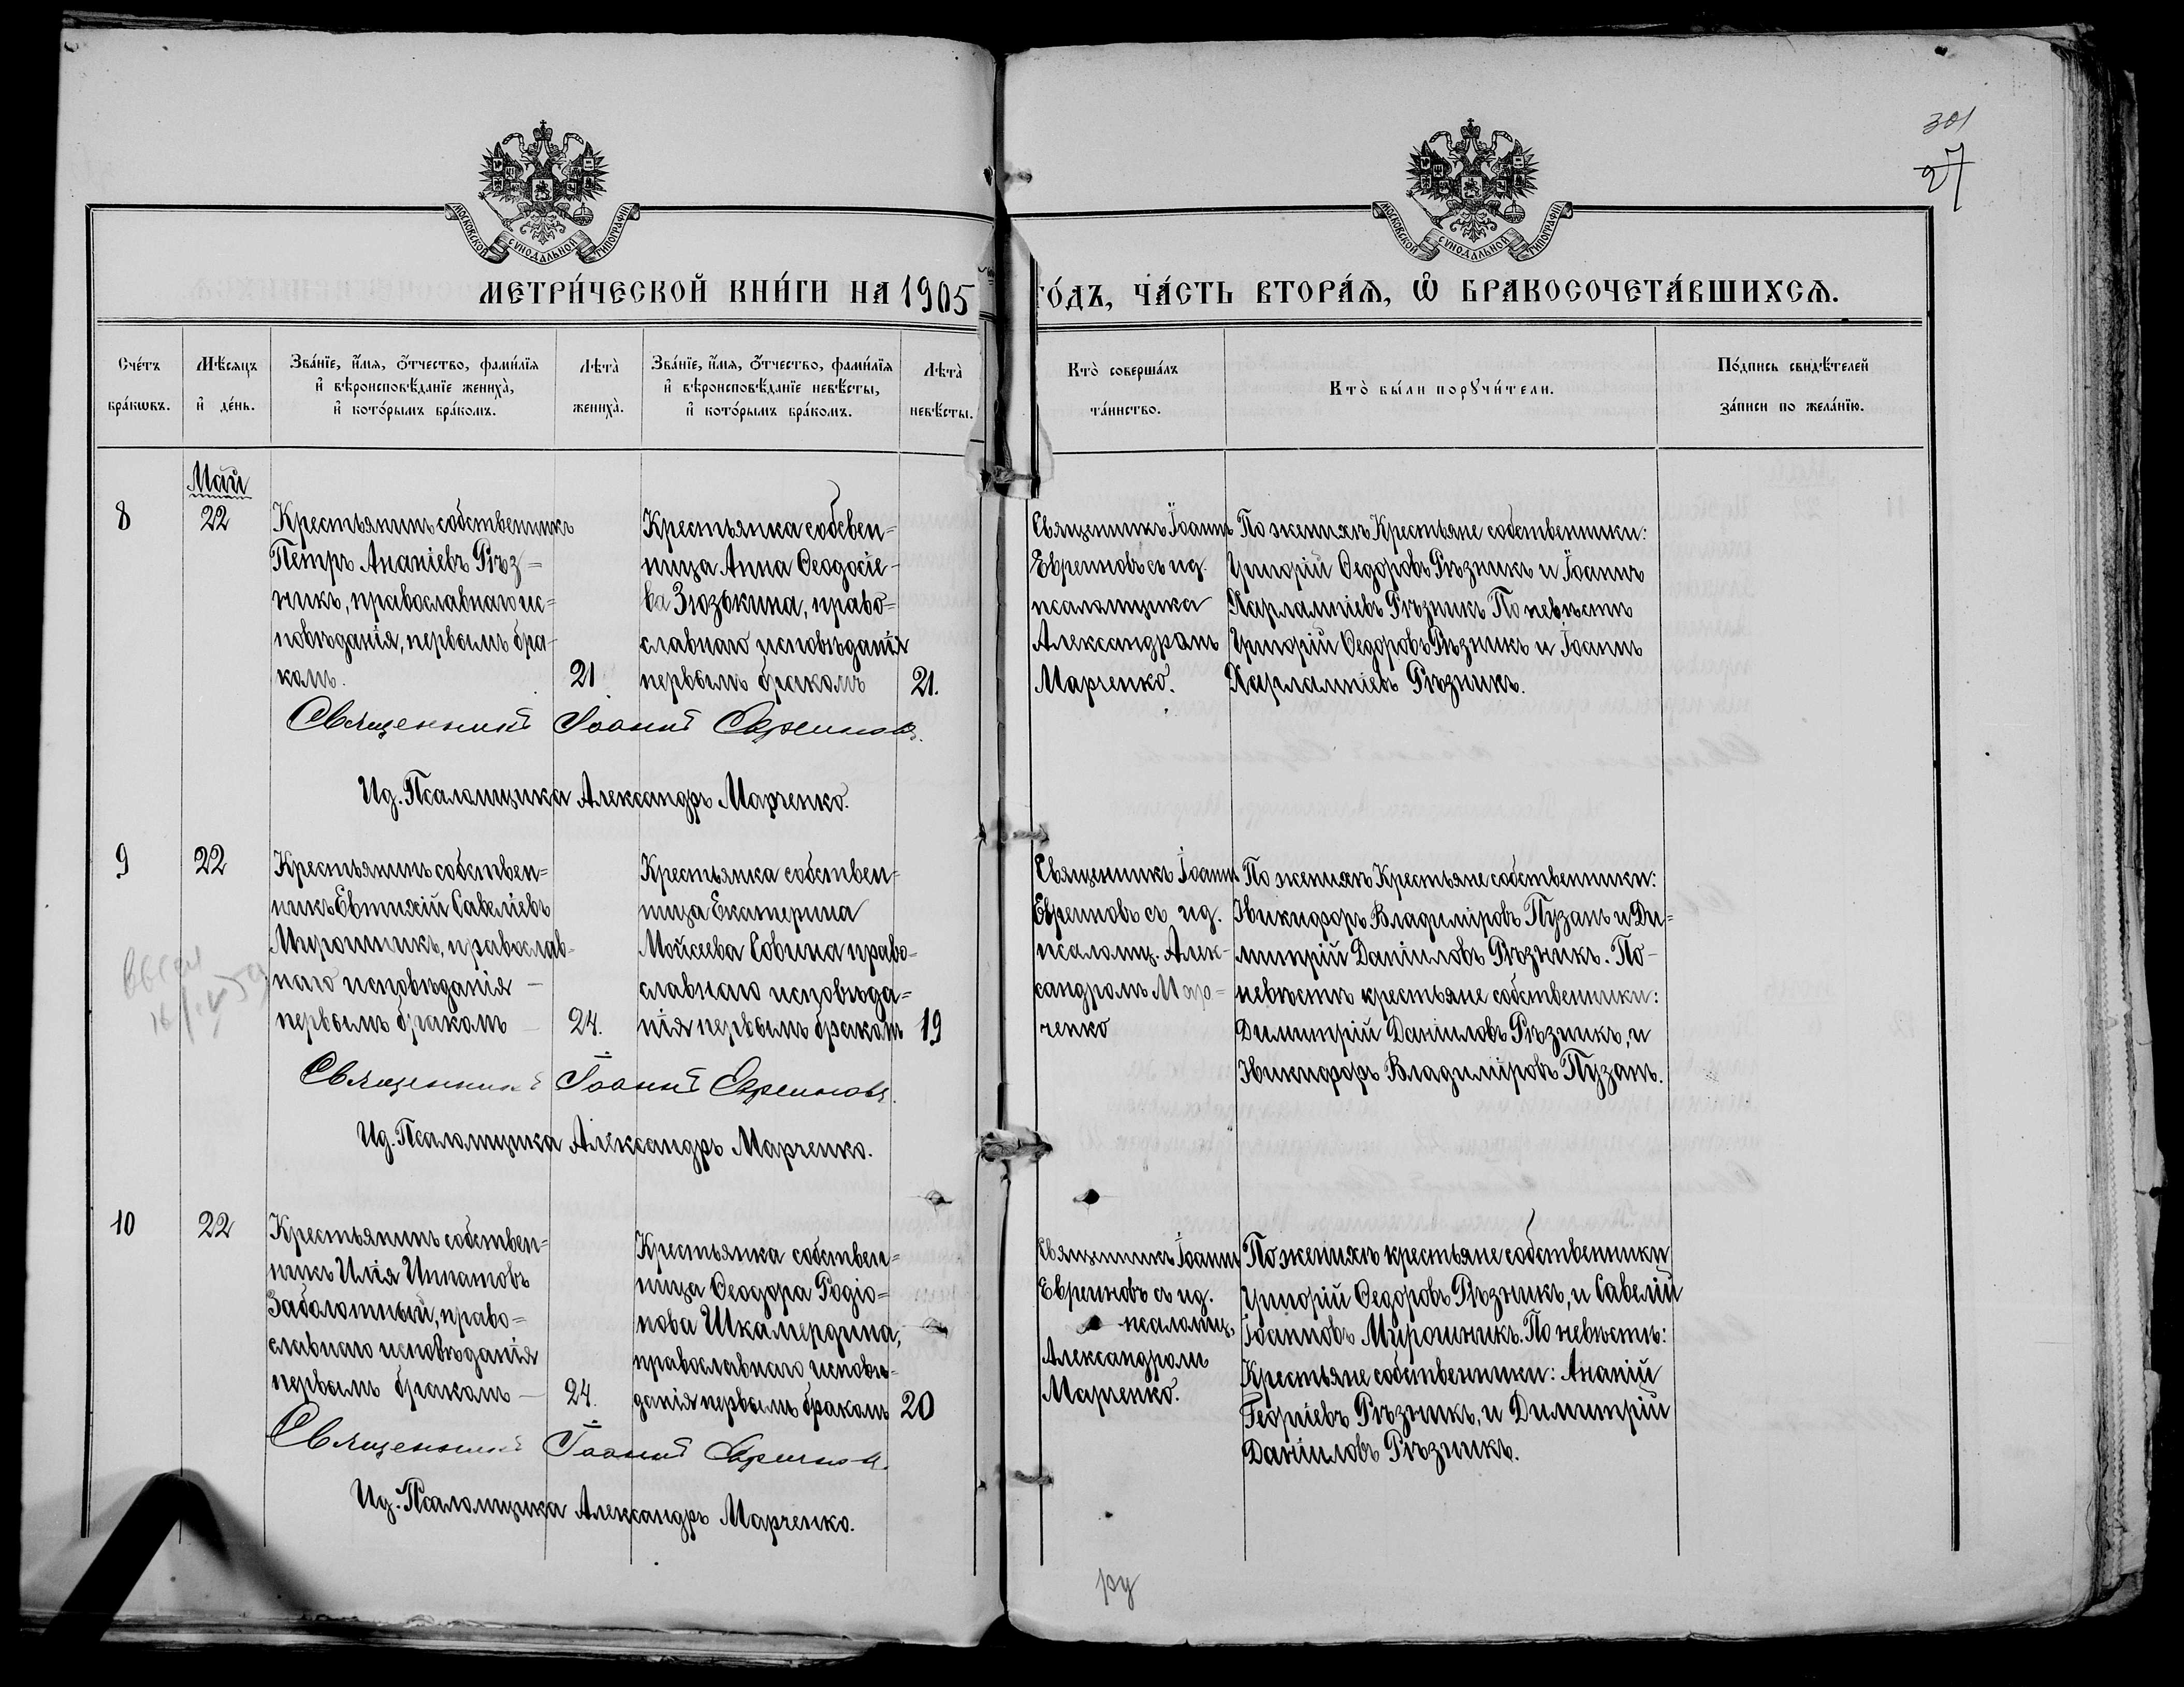 301
27
МОСКОВСКОЙ СѴНОДАЛЬНОЙ ТИПОГРАФІИ
МОСКОВСКОЙ СѴНОДАЛЬНОЙ ТИПОГРАФІИ
МЕТРИ́ЧЕСКОЙ КНИ́ГИ НА 1905 ГО́ДЪ, ЧА́СТЬ ВТОРА́Ѧ, Ѡ҆ БРАКОСОЧЕТА́ВШИХСѦ.
Сче́тъ бра́кѡвъ.
Мѣ́сяцъ и҆ де́нь.
Зва́нїе, и҆́мя, ѻ҆́тчество, фами́лїя
и҆ вѣроисповѣ́данїе жениха̀,
и҆ кото́рымъ бра́комъ.
Лѣта̀ жениха̀.
Зва́нїе, и҆́мя, ѻ҆́тчество, фами́лїя
и҆ вѣроисповѣ́данїе невѣ́сты,
и҆ кото́рымъ бра́комъ.
Лѣта̀ невѣ́сты.
Кто̀ соверша́лъ
та́инство.
Кто̀ бы́ли порꙋчи́тели.
По́дпись свидѣ́телей
за́писи по жела́нїю.
Май
8
22
Крестьянинъ собственникъ
Петръ Ананіевъ Рѣз=
никъ, православнаго ис=
повѣданія, первымъ бра-
комъ.
21.
Крестьянка собсвен=
ница Анна Ѳеодосіе-
ва Зюзькина, право=
славнаго исповѣданія
первымъ бракомъ
21.
Священникъ Іоаннъ
Евреиновъ съ ид.
псаломщика
Александромъ
Марченко.
По женихѣ Крестьяне собственники:
Григорій Ѳедоровъ Рѣзникъ и Іоаннъ
Харлампіевъ Рѣзникъ По невѣстѣ
Григорій Ѳедоровъ Рѣзникъ и Іоаннъ
Харлампіевъ Рѣзникъ.
Священникъ Іоаннъ Евреиновъ.
Ид. Псаломщика Александръ Марченко.
9
22
Крестьянинъ собствен=
никъ Евтихій Савеліевъ
Мирошникъ, православ=
наго исповѣданія –
первымъ бракомъ –
24.
Крестьянка собствен-
ница Екатерина
Мойсеева Совина право=
славнаго исповѣда=
нія первымъ бракомъ
19
Священникъ Іоаннъ
Евреиновъ съ ид.
псаломщ. Алек-
сандромъ Мар=
ченко
По женихѣ Крестьяне собственники:
Никифоръ Владиміровъ Пузанъ и Ди=
митрій Даніиловъ Рѣзникъ. По-
невѣстѣ крестьяне собственники:
Димитрій Даніиловъ Рѣзникъ, и
Никифоръ Владиміровъ Пузанъ.
Священникъ Іоаннъ Евреиновъ.
Ид. Псаломщика Александръ Марченко.
10
22
Крестьянинъ собствен=
никъ Илія Ипатовъ
Заболотный, право=
славнаго исповѣданія
первымъ бракомъ –
24.
Крестьянка собствен=
ница Ѳеодора Родіо=
нова Шкамердина,
православнаго исповѣ-
данія первымъ бракомъ
20
Священникъ Іоаннъ
Евреиновъ съ ид.
псаломщ.
Александромъ
Марченко.
По женихѣ крестьяне собственники
Григорій Ѳедоровъ Рѣзникъ, и Савелій
Іоанновъ Мирошникъ. По невѣстѣ:
Крестьяне собственники: Ананій
Георгіевъ Рѣзникъ, и Димитрій
Даніиловъ Рѣзникъ.
Священникъ Іоаннъ Евреиновъ.
Ид. Псаломщика Александръ Марченко.